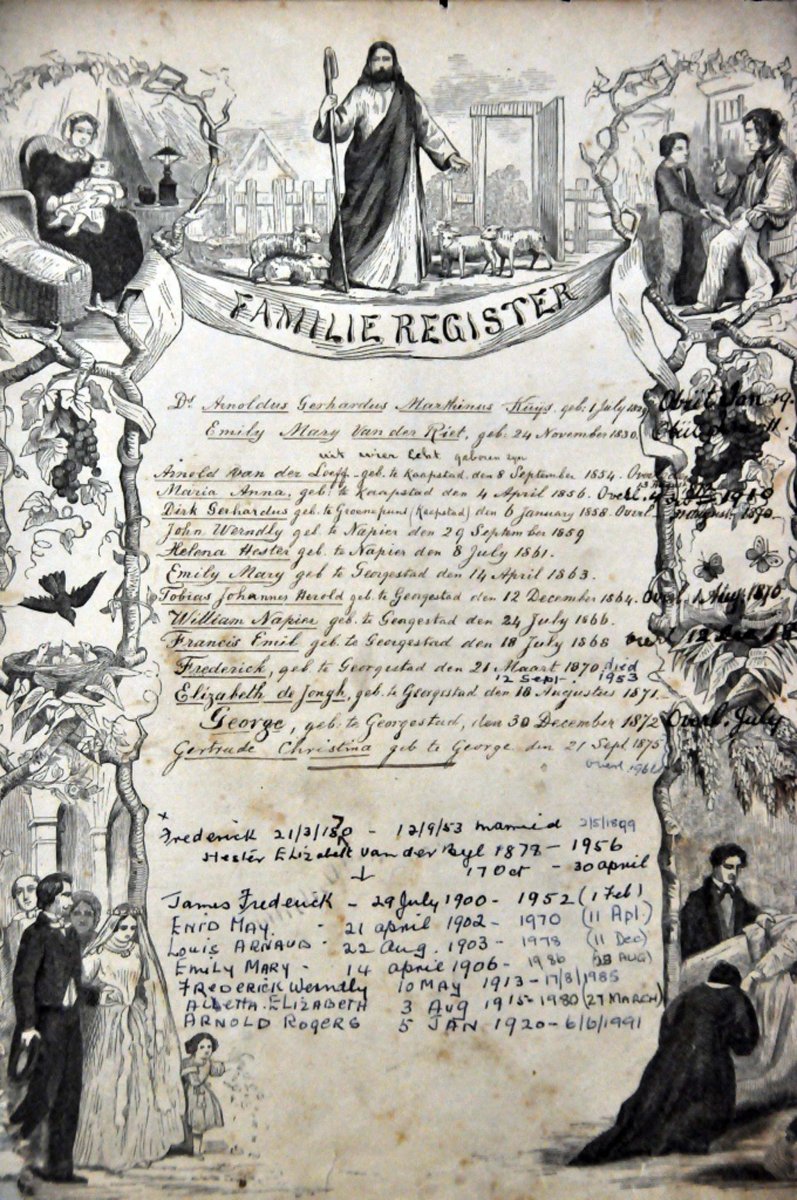 FAMILIE REGISTER
Ds Arnoldus Gerhardus Marthinus Kuys. geb: 1 July Obiit Jan 19.
Emily Mary Van der Riet, geb: 24 November 1830. Obiit
uit wier Echt geboren zyn
Arnold Van der Loeff - geb. te Kaapstad den 8 September 1854. Overl.
Maria Anna, geb: te Kaapstad den 4 April 1856. Overl.
Dirk Gerhardus geb: te Groenepunt (Kaapstad) den 6 January 1858. Overl. August 1870.
John Werndly geb te Napier den 29 September 1859
Helena Hester geb. te Napier den 8 July 1861.
Emily Mary geb te Georgestad den 14 April 1863.
Tobias Johannes Herold geb te Georgestad den 12 December 1864. Overl. 1 Aug. 1870
William Napier geb te Georgestad den 24 July 1866.
Francis Emil geb te Georgestad den 18 July 1868 overl 12 Dec 18
Frederick, geb te Georgestad den 21 Maart 1870. died
12 Sept. 1953
Elizabeth de Jongh, geb. te Georgestad den 18 Augustus 1871.
George, geb: te Georgestad, den 30 December 1872 Overl. July
Gertrude Christina geb te George den 21 Sept 1875
overl.
x
Frederick 21/3/1870 - 12/9/53 married 2/5/1899
Hester Elizabeth van der Byl 1878 - 1956
↓ 17 Oct - 30 april
James Frederick - 29 July 1900 - 1952 (1 Feb)
ENID MAY. - 21 april 1902 - 1970 (11 Apl.)
Louis ARNAUD - 22 Aug. 1903 - 1978 (11 Dec)
Emily MARY - 14 april 1906 - 1986 (28 AUG)
FREDERICK Werndly 10 MAY 1913 - 17/8/1985
Aletta ELIZABETH 3 Aug 1915 - 1980 (27 MARCH)
ARNOLD ROGERS 5 JAN 1920 - 6/6/1991